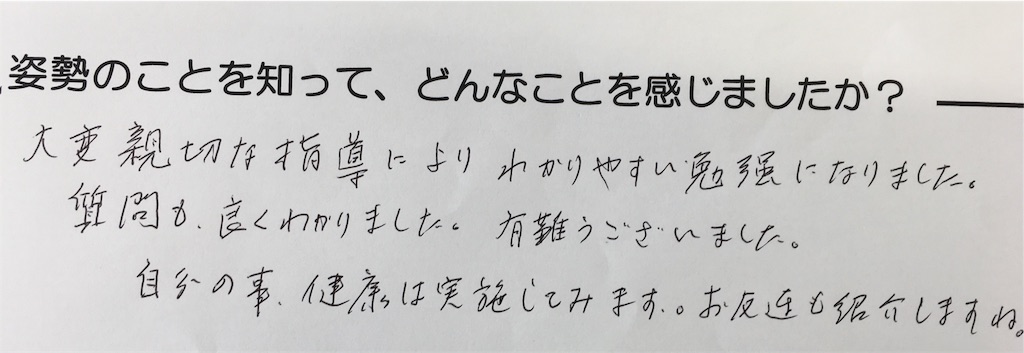 姿勢のことを知って、どんなことを感じましたか？
大変親切な指導によりわかりやすい勉強になりました。
質問も、良くわかりました。有難うございました。
自分の事、健康は実施してみます。お友達も紹介しますね。